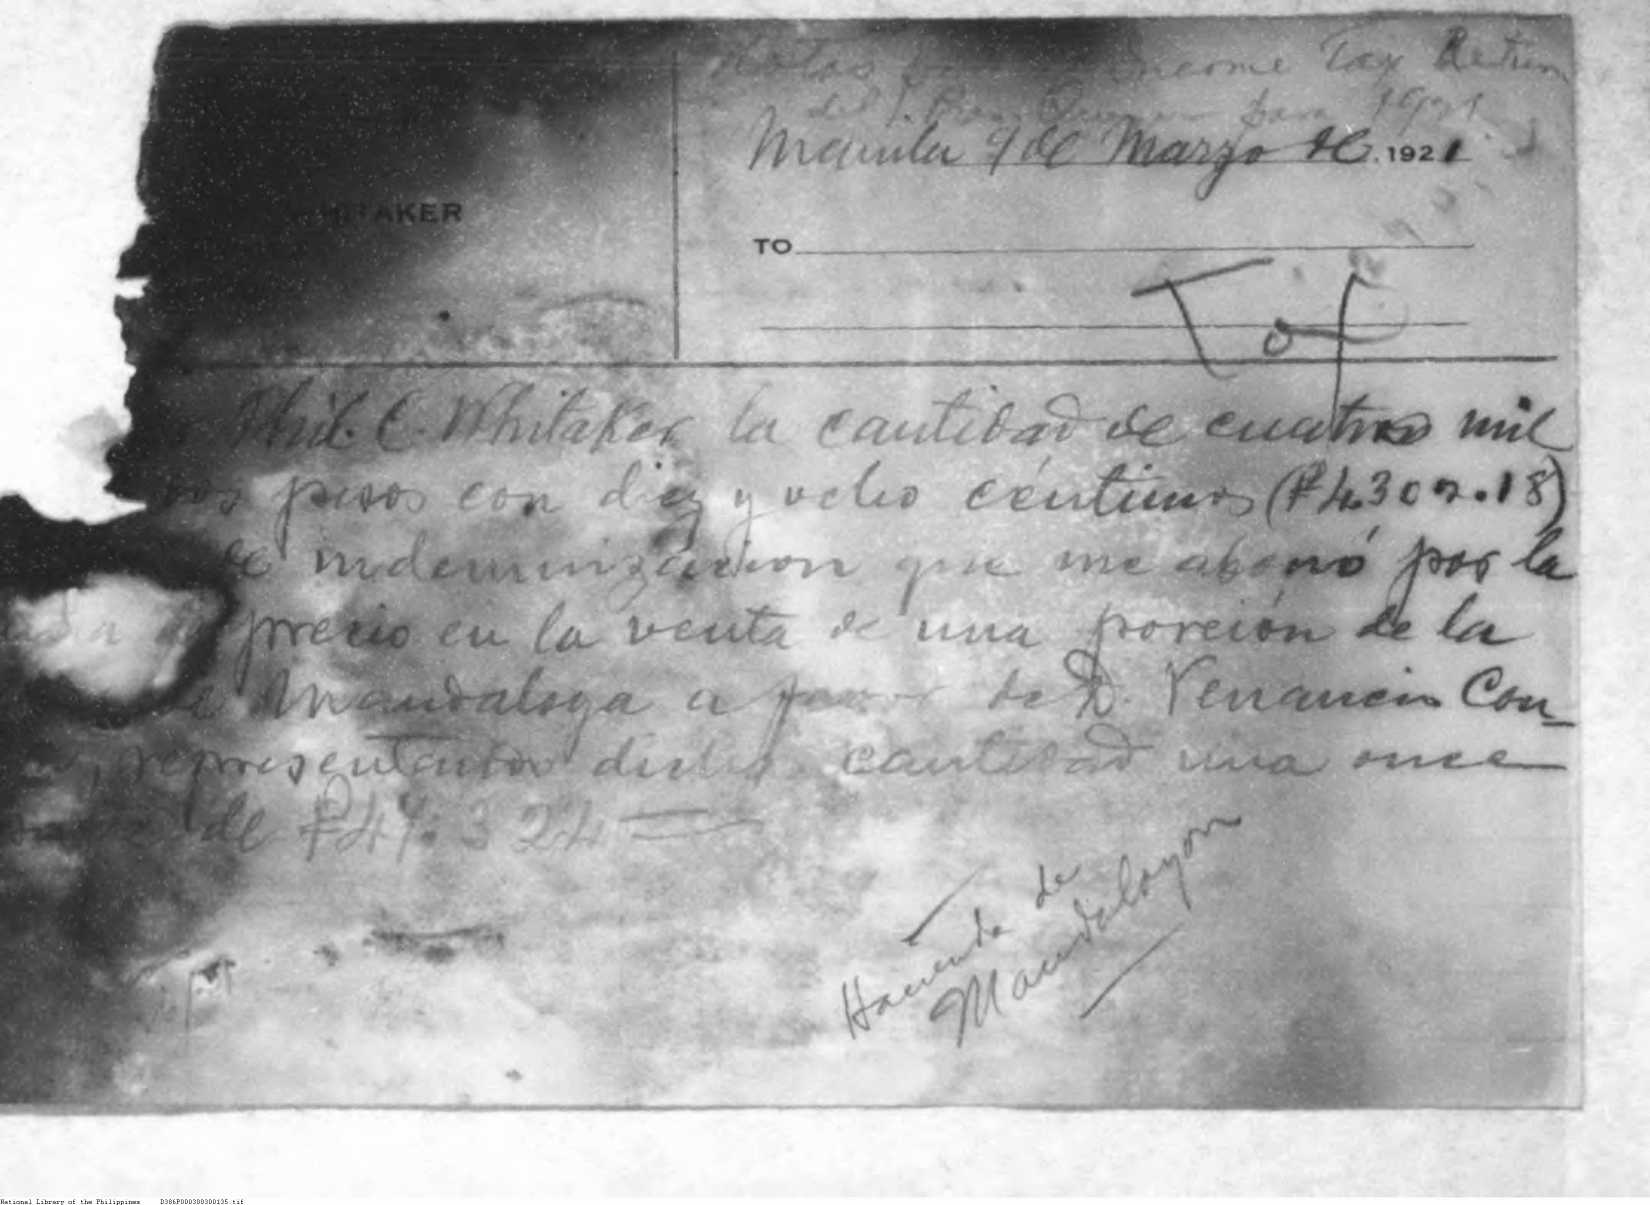 Notas Income Tax Return
del para 1921
Manila 9 de Marzo de, 1921
WHITAKER
TO
Tax
Phil. C. Whitaker la cantidad de cuatro mil
pesos con diez y ocho céntimos (₱4.302.18)
de indemnizacion que me abonó por la
precio en la venta de una porción de la
de Mandaloya a favor de D. Venancio Con-
representando dicha cantidad una once
de ₱47.324
Hacienda de
Mandaloyon
National Library of the Philippines D386P000300300135.tif